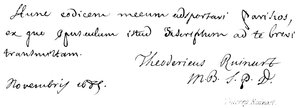 Hunc codicem mecum adsportavi Parisios,
ex quo opusculum istud descriptum ad te brevi
transmittam.
Theodericus Ruinart
MB. S. P. D.
Novembris